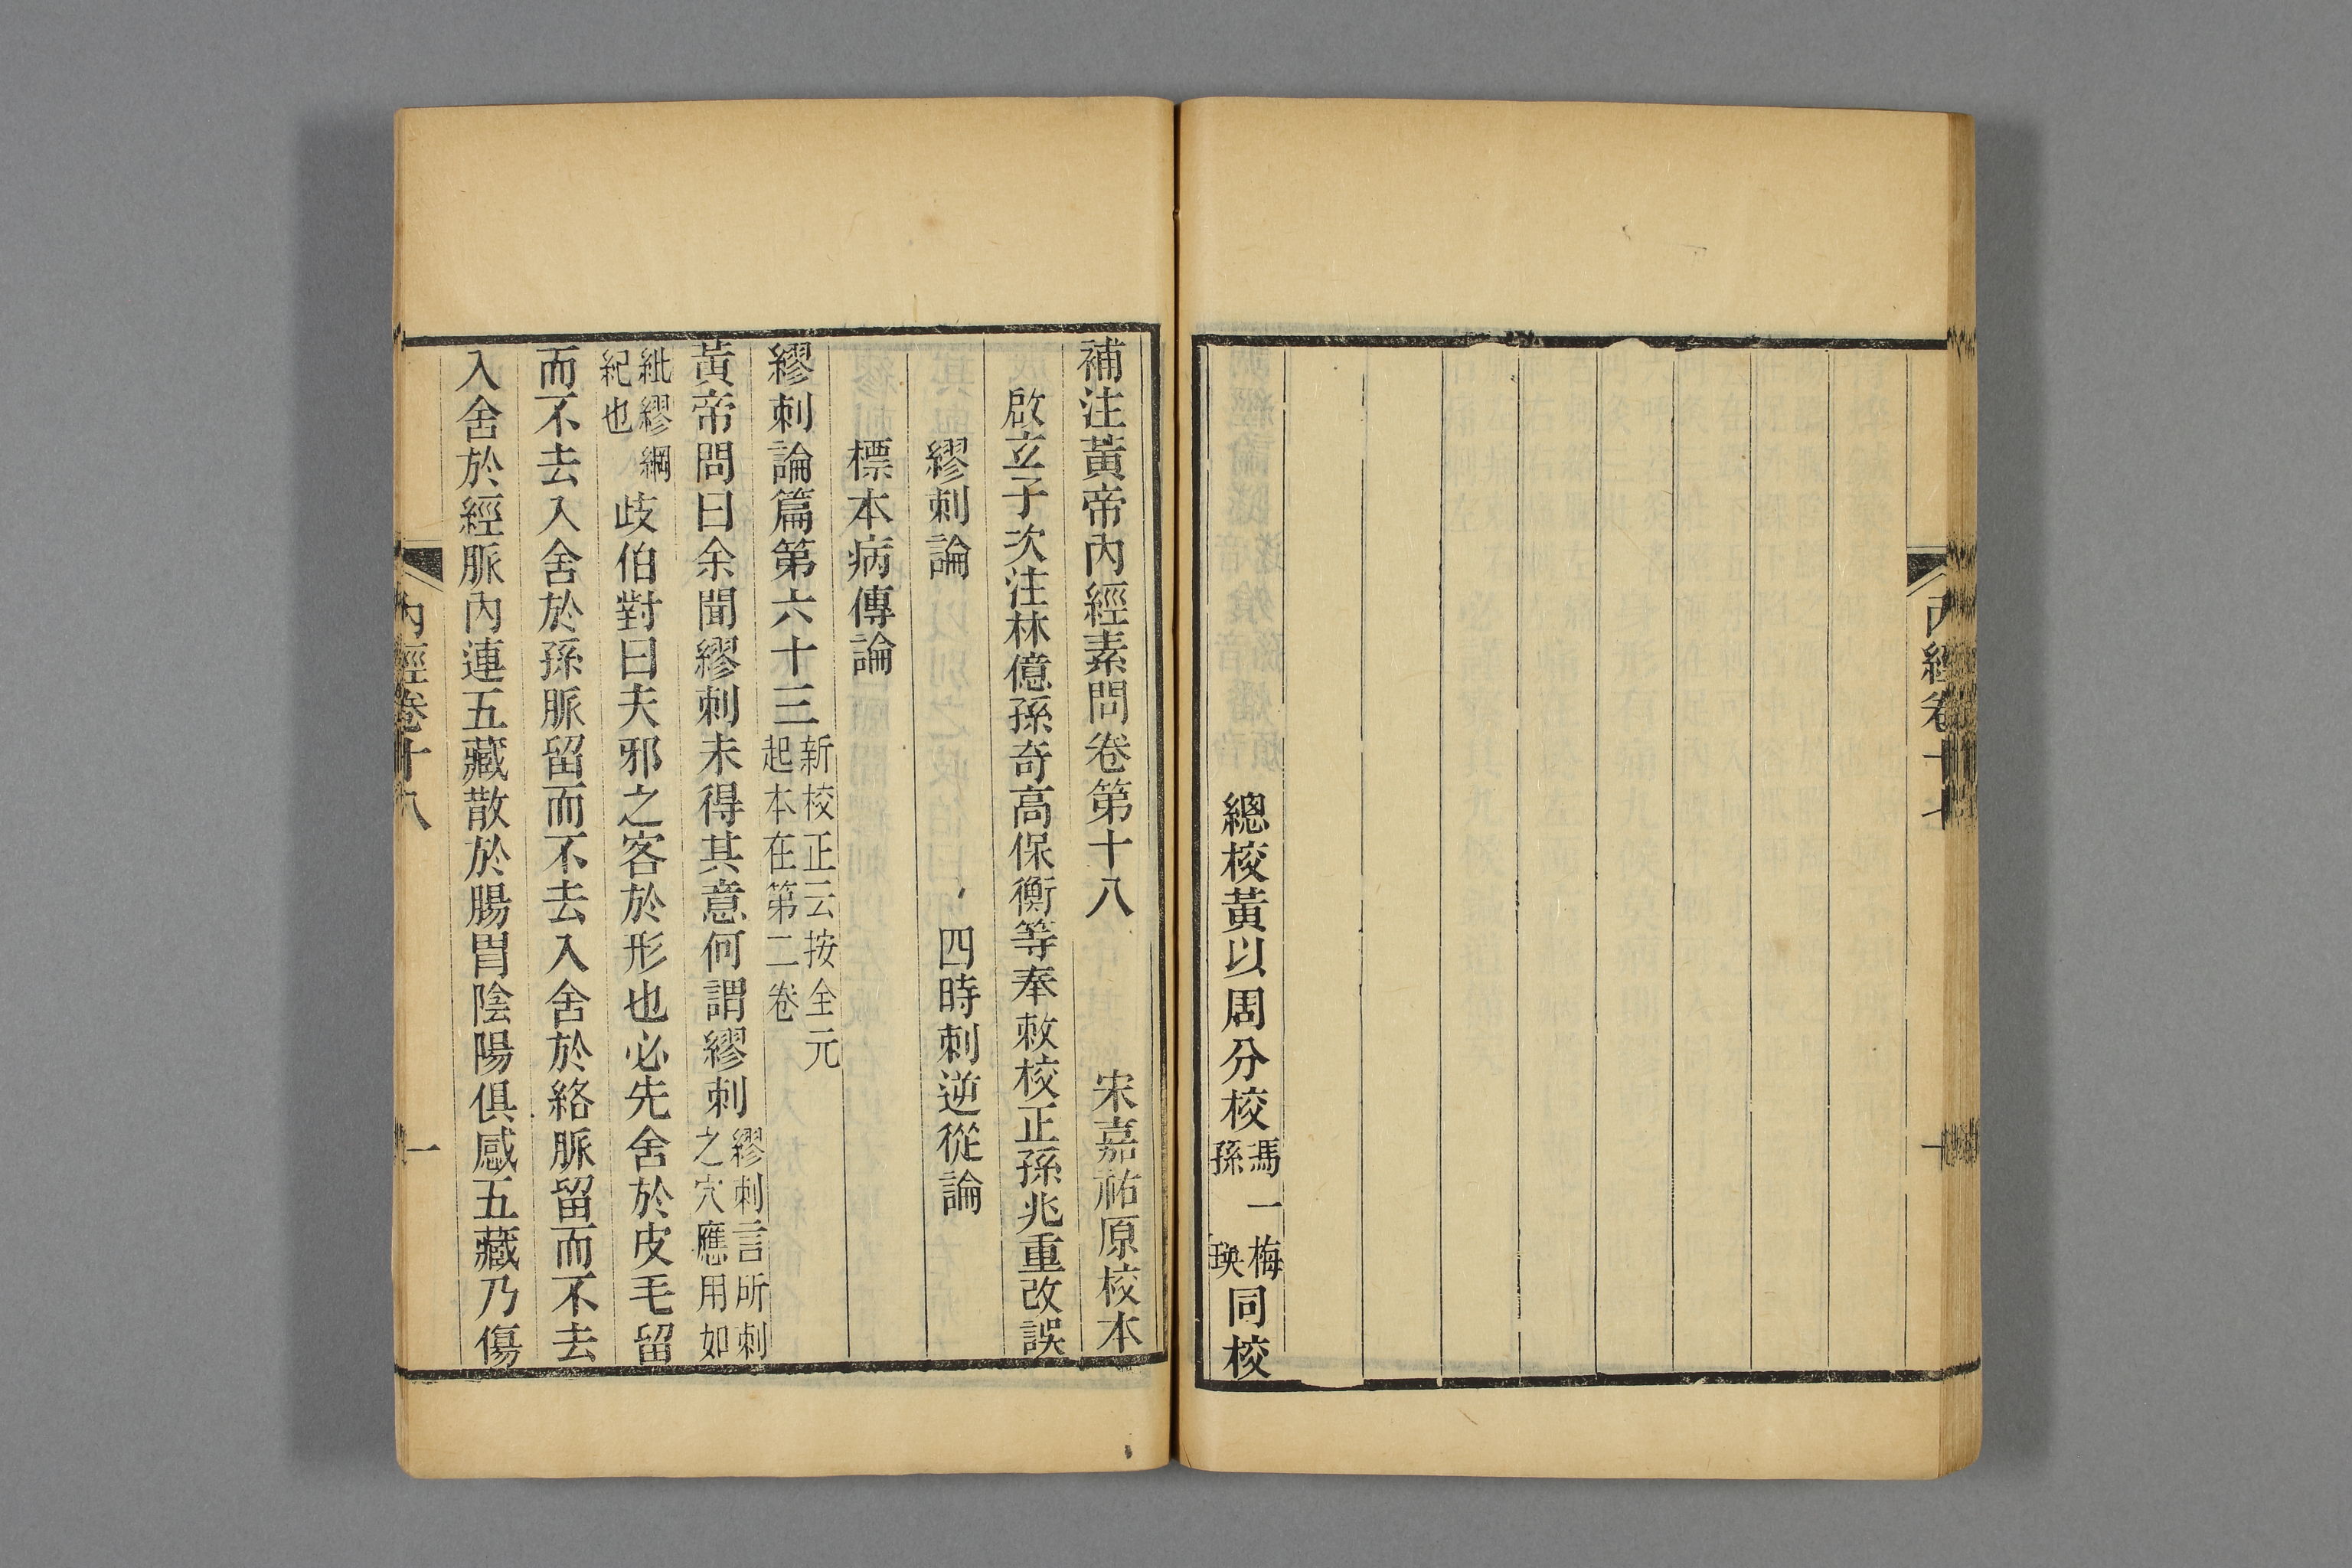 內經卷十七
總校黃以周分校馮一梅孫瑛同校
補注黃帝內經素問卷第十八 宋嘉祐原校本
啟玄子次注林億孫奇高保衡等奉敕校正孫兆重改誤
繆刺論 四時刺逆從論
標本病傳論
繆刺論篇第六十三新校正云按全元起本在第二卷
黃帝問曰余聞繆刺未得其意何謂繆刺繆刺言所刺之穴應用如
紕繆綱紀也歧伯對曰夫邪之客於形也必先舍於皮毛留
而不去入舍於孫脈留而不去入舍於絡脈留而不去
入舍於經脈內連五藏散於腸胃陰陽俱感五藏乃傷
內經卷十八 一